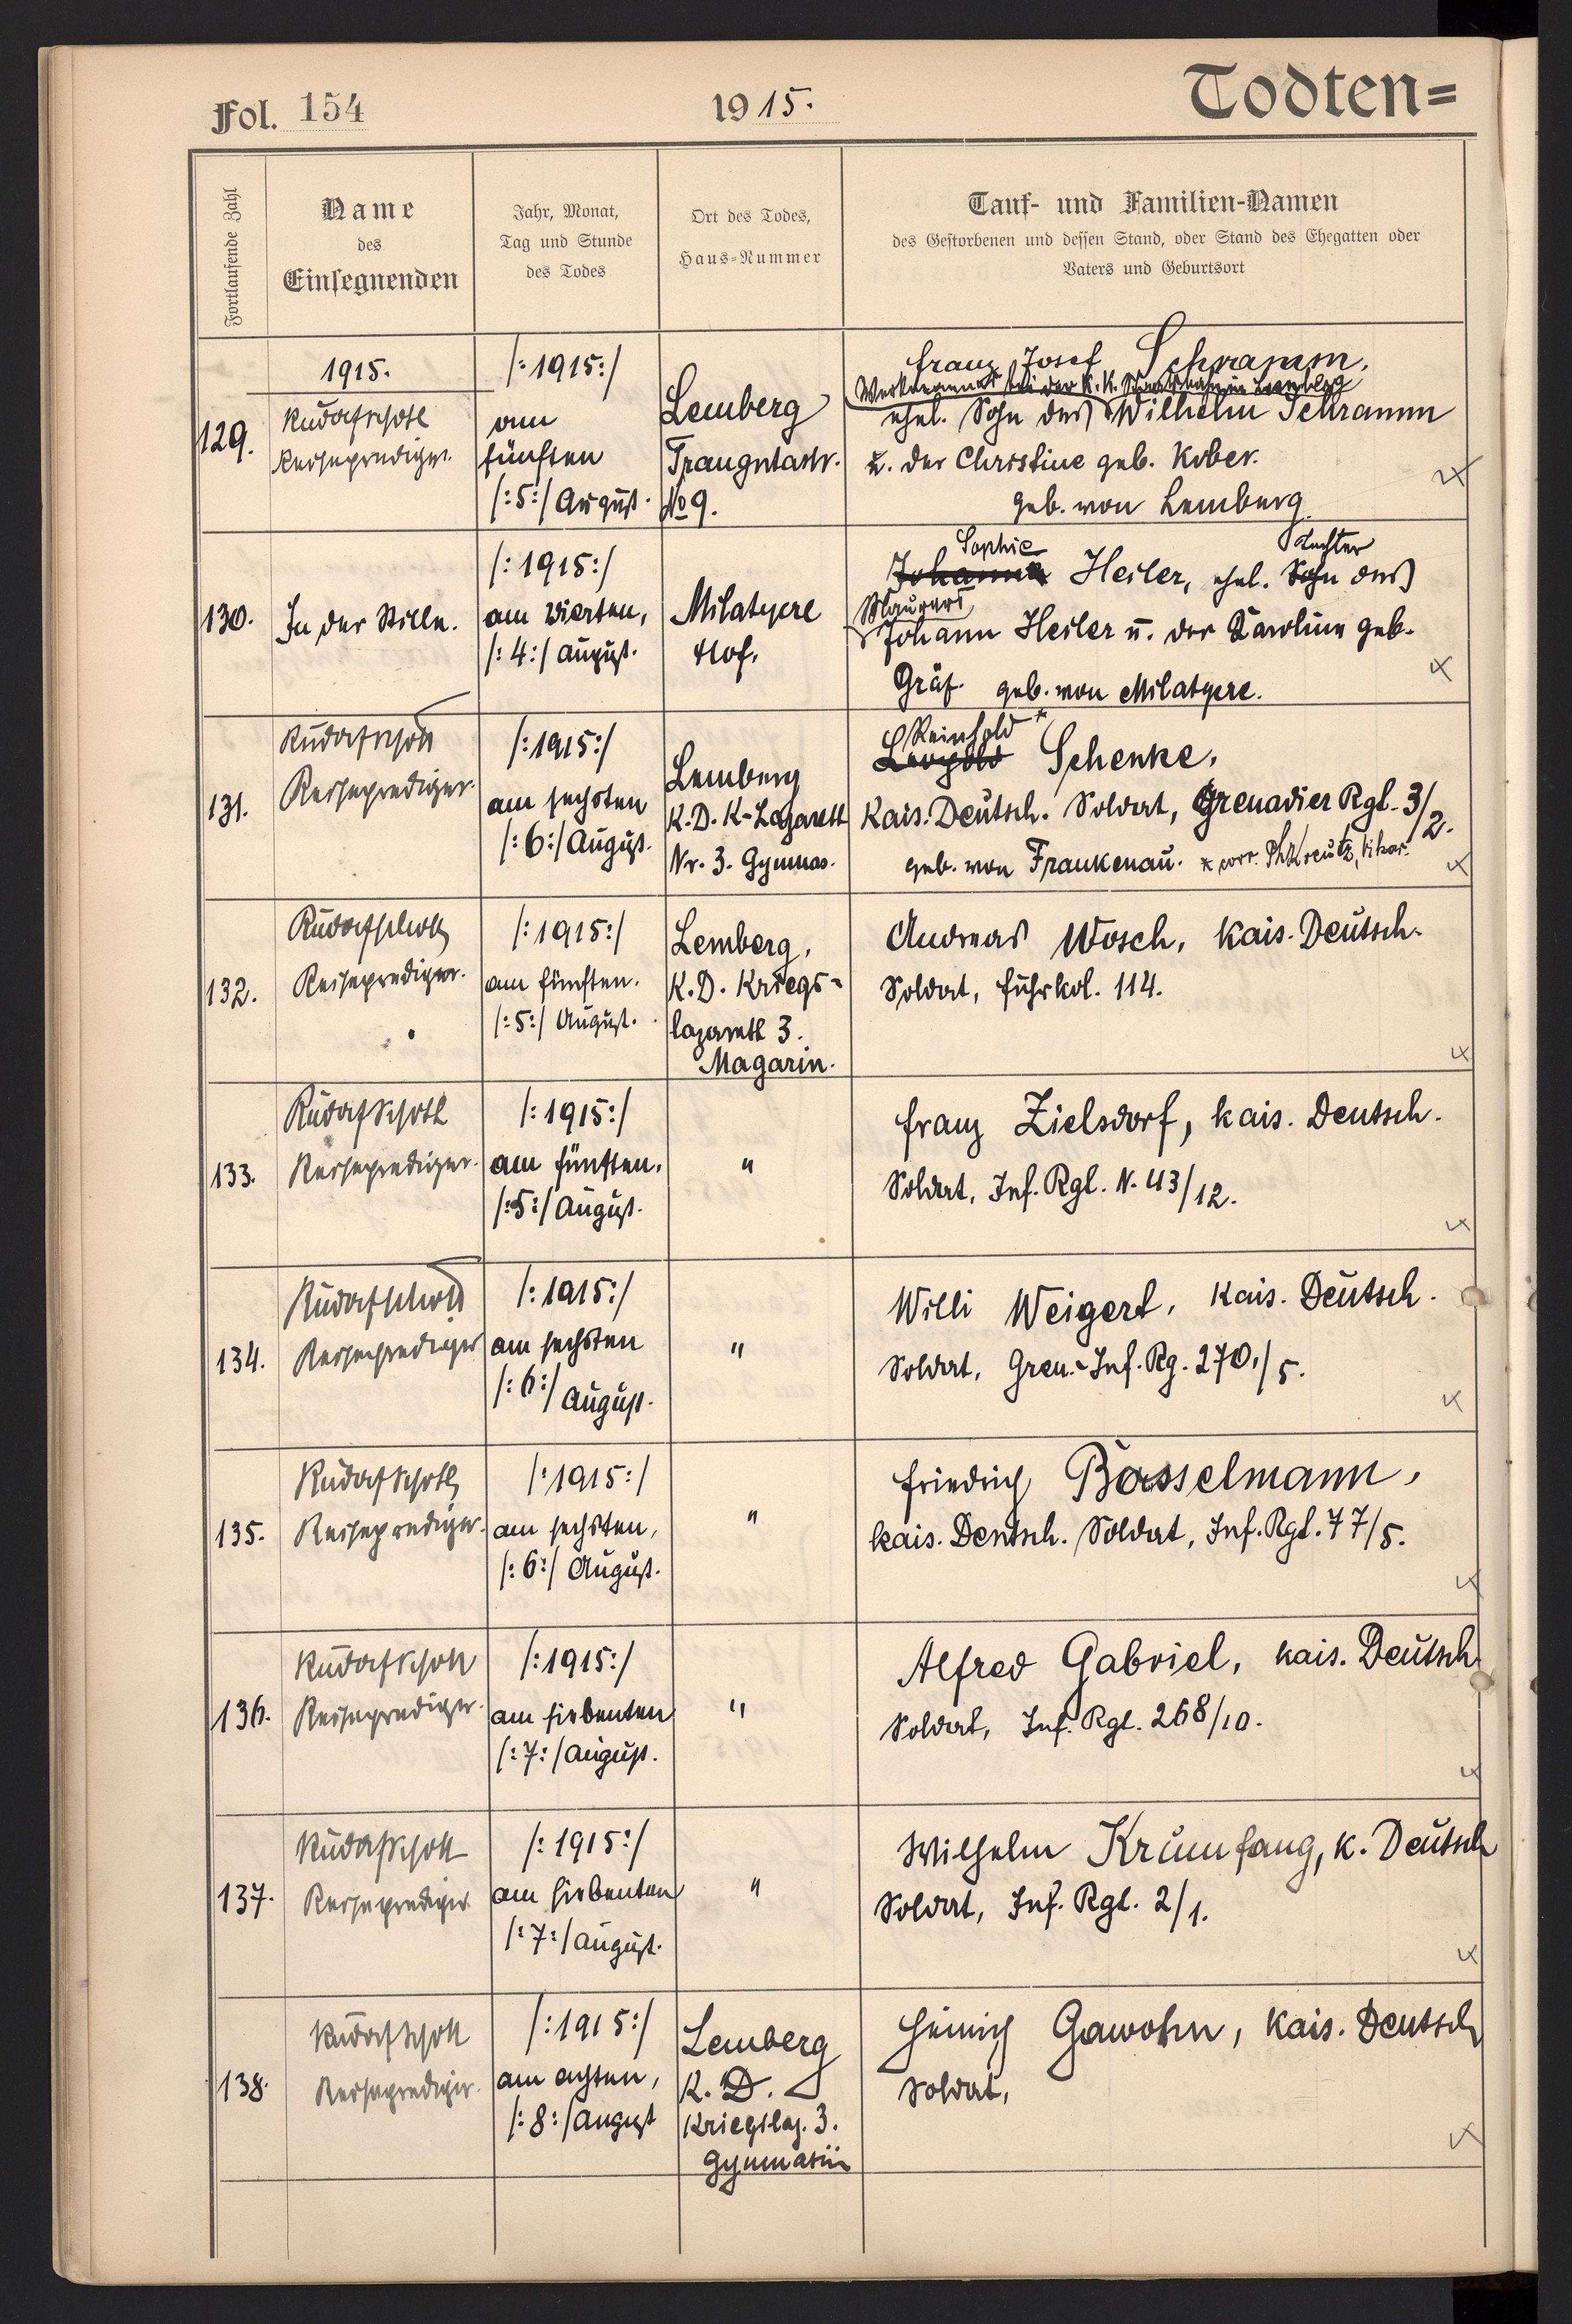 Fol. 154
1915.
Todten=
Fortlaufende Zahl
Name
des
Einsegnenden
Jahr, Monat,
Tag und Stunde
des Todes
Ort des Todes,
Haus-Nummer
Tauf- und Familien-Namen
des Gestorbenen und dessen Stand, oder Stand des Ehegatten oder
Vaters und Geburtsort
129.
1915.
Rud. Opholl
Reiseprediger.
/:1915:/
am
fünften
/:5:/ August.
Lemberg
№ 9.
Franz Josef Schramm,
ehel. Sohn des Wilhelm Schramm
u. der Christine geb. Kober.
geb. von Lemberg
130.
In der Stille.
/:1915:/
am vierten,
/:4:/ August.
Milatycze
Hof.
Sophie Tochter
Johanna Heiler, ehel. Sohn des
Maurers
Johann Heiler u. der Karoline geb.
Gräf. geb. von Milatycze.
131.
Reiseprediger.
/:1915:/
am sechsten
/:6:/ August.
Lemberg
K.D.K-Lazarett
Nr. 3. Gymnas.
Reinhold *
Leopold Schenke,
Kais. Deutsch. Soldat, Grenadier Rgl. 3/2.
geb. von Frankenau. * corr. Kreutz, Vikar.
132.
Reiseprediger.
/:1915:/
am fünften.
/:5:/ August.
Lemberg,
K.D. Kriegs-
lazareth 3.
Magazin.
Andreas Wosch, Kais. Deutsch.
Soldat, Fuhrkol. 114.
133.
Reiseprediger.
/:1915:/
am fünften.
/:5:/ August.
"
Franz Zielsdorf, kais. Deutsch.
Soldat, Inf. Rgl. N. 43/12.
134.
Reiseprediger
/:1915:/
am sechsten
/:6:/ August.
"
Willi Weigert, Kais. Deutsch.
Soldat, Gren.-Inf. Rg. 270./5.
135.
Reiseprediger.
/:1915:/
am sechsten,
/:6:/ August.
"
Friedrich Basselmann,
kais. Deutsch. Soldat, Inf. Rgt. 77/5.
136.
Reiseprediger.
/:1915:/
am siebenten
/:7:/ August.
"
Alfred Gabriel, kais. Deutsch
Soldat, Inf. Rgl. 268/10.
137.
Reiseprediger.
/:1915:/
am siebenten
/:7:/ August.
"
Wilhelm Krumfang, K. Deutsch
Soldat, Inf. Rgl. 2/1.
138.
Reiseprediger.
/:1915:/
am achten,
/:8:/ August
Lemberg
K. D.
Kriegslaz. 3.
Gymnasium
Heinrich Gawohn, Kais. Deutsch
Soldat,